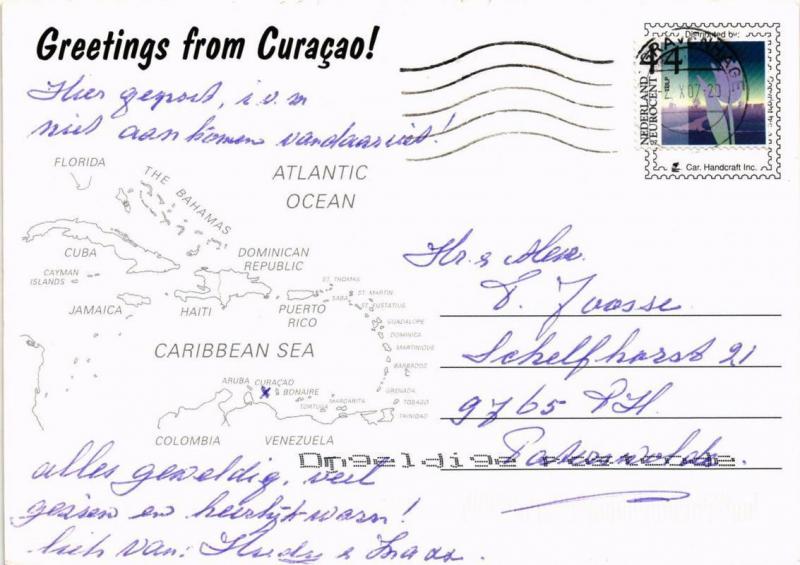 Greetings from Curaçao!
Hier gepost, i.v.m
niet aankomen vandaaruit!
FLORIDA
THE BAHAMAS
ATLANTIC
OCEAN
CUBA
CAYMAN
ISLANDS
JAMAICA
HAITI
DOMINICAN
REPUBLIC
PUERTO
RICO
ST. THOMAS
SABA
ST. MARTIN
ST. EUSTATIUS
GUADALOPE
DOMINICA
MARTINIQUE
BARBADOS
GRENADA
TOBAGO
TRINIDAD
CARIBBEAN SEA
ARUBA CURAÇAO
BONAIRE
TORTUGA
MARGARITA
COLOMBIA
VENEZUELA
alles geweldig, veel
gezien en heerlijk warm!
liefs van:
Distributed by:
'S GRAVENHAGE
X 07-20
44
NEDERLAND
EUROCENT
Car. Handcraft Inc.
Hr. & Mev.
Schelfhorst 21
9765
Paterswolde